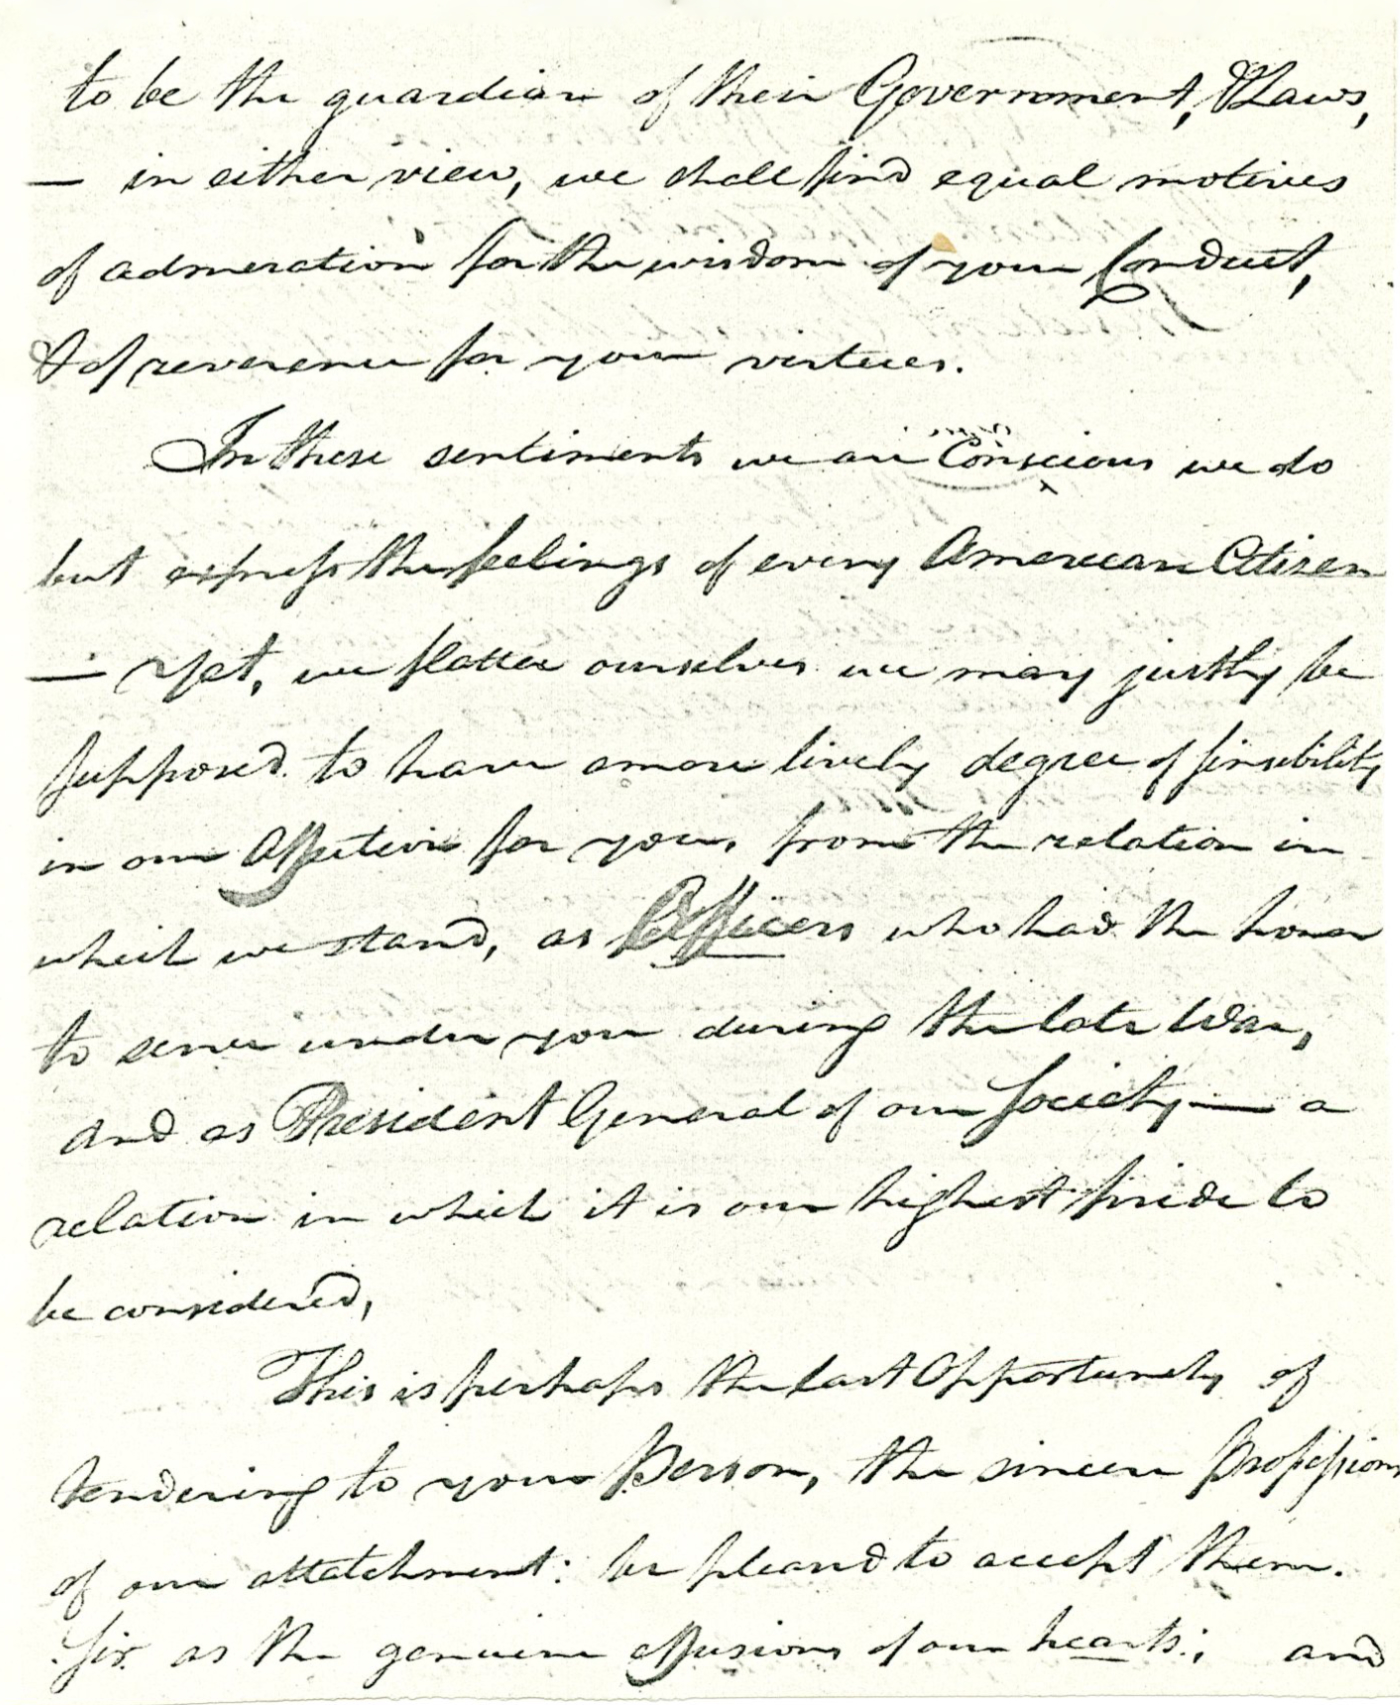 to be the guardian of their Government, & Laws,
— in either view, we shall find equal motives
of admeration for the wisdom of your Conduct,
& of reverence for your virtues.
In these sentiments we are Conscious we do
but express the feelings of every American Citizen
— Yet, we flatter ourselves we may justly be
supposed to have a more lively degree of sensibility
in our Affection for you, from the relation in
which we stand, as Officers who had the honor
to serve under you during the late War,
and as President General of our Society — a
relation in which it is our highest pride to
be considered,
This is perhaps the last Opportunity of
tendering to your Person, the sincere Professions
of our attatchment: be pleased to accept them.
Sir as the genuine effusions of our hearts; and